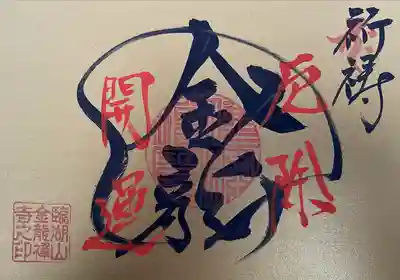 祈祷
厄除
金龍
開運
臨湖山
金龍禅
寺之印